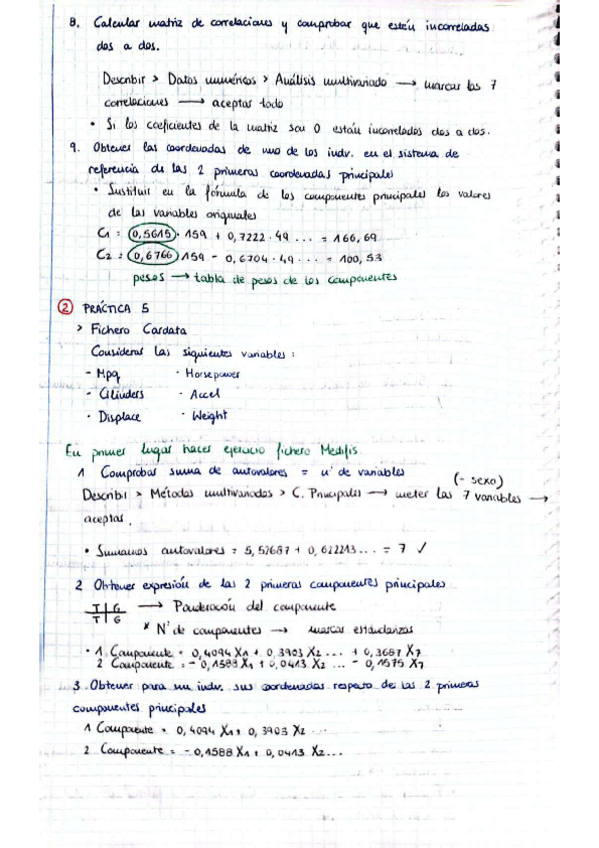 8. Calcular matriz de correlaciones y comprobar que estén incorreladas
dos a dos.
Describir > Datos numéricos > Análisis multivariado → marcar las 7
correlaciones → aceptar todo
• Si los coeficientes de la matriz son 0 están incorrelados dos a dos.
9. Obtener las coordenadas de uno de los indv. en el sistema de
referencia de las 2 primeras coordenadas principales
• Sustituir en la fórmula de los componentes principales los valores
de las variables originales
C1 = 0,5615 · 159 + 0,7222 · 49 ... = 166,69
C2 = 0,6766 159 - 0,6704 · 49 ... = 100,53
pesos → tabla de pesos de los componentes
2 PRÁCTICA 5
> Fichero Cardata
Considerar las siguientes variables:
- Mpg · Horsepower
- Cilinders · Accel
· Displace · Weight
En primer lugar hacer ejercicio fichero Medifis.
1 Comprobar suma de autovalores = nº de variables
(- sexo)
Describir > Métodos multivariados > C. Principales → meter las 7 variables →
aceptar.
• Sumamos autovalores = 5,52687 + 0,622213... = 7 ✓
2 Obtener expresión de las 2 primeras componentes principales
T G → Ponderación del componente
T G * Nº de componentes → marcar estandarizas
· 1 Componente = 0,4094 X1 + 0,3903 X2 ... + 0,3657 X7
2 Componente = - 0,1588 X1 + 0,0413 X2 ... - 0,1575 X7
3. Obtener para un indv. sus coordenadas respecto de las 2 primeras
componentes principales
1 Componente = 0,4094 X1 + 0,3903 X2 ...
2 Componente = - 0,1588 X1 + 0,0413 X2...